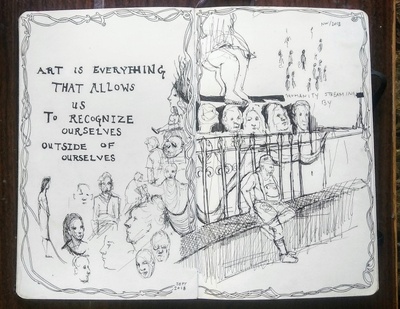 ART IS EVERYTHING
THAT ALLOWS
US
TO RECOGNIZE
OURSELVES
OUTSIDE OF
OURSELVES
2018
HUMANITY STREAMING
BY